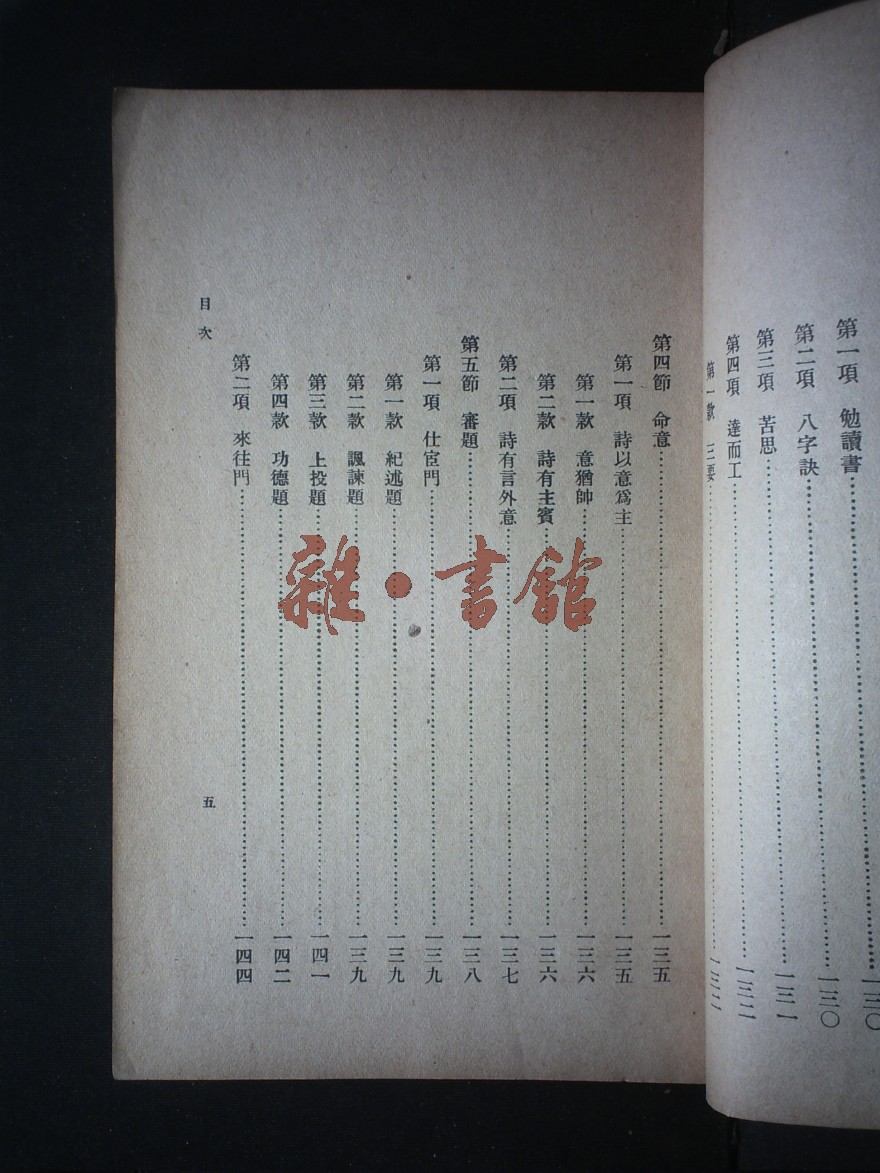 第一項　勉讀書……一三〇
第二項　八字訣……一三〇
第三項　苦思……一三一
第四項　達而工……一三二
第一款　三要……一三二
第四節　命意……一三五
第一項　詩以意爲主……一三五
第一款　意猶帥……一三六
第二款　詩有主賓……一三六
第二項　詩有言外意……一三七
第五節　審題……一三八
第一項　仕宦門……一三九
第一款　紀述題……一三九
第二款　諷諫題……一三九
第三款　上投題……一四一
第四款　功德題……一四二
第二項　來往門……一四四
目次
五
雜・書館